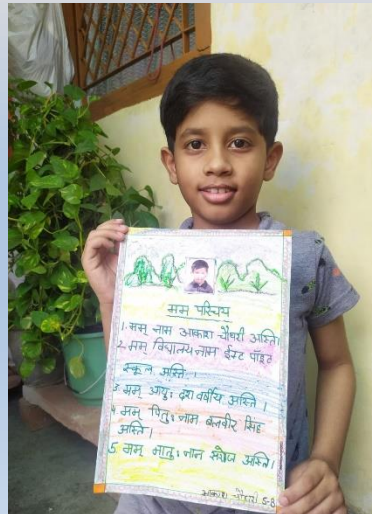 मम् परिचय
1. मम् नाम आकाश चौधरी अस्ति।
2. मम् विद्यालय नाम ईस्ट पॉइंट
स्कूल अस्ति।
3. मम् आयुः दश वर्षीय अस्ति।
4. मम् पितुः नाम बलवीर सिंह
अस्ति।
5. मम् मातुः नाम सरोज अस्ति।
आकाश चौधरी 5-B